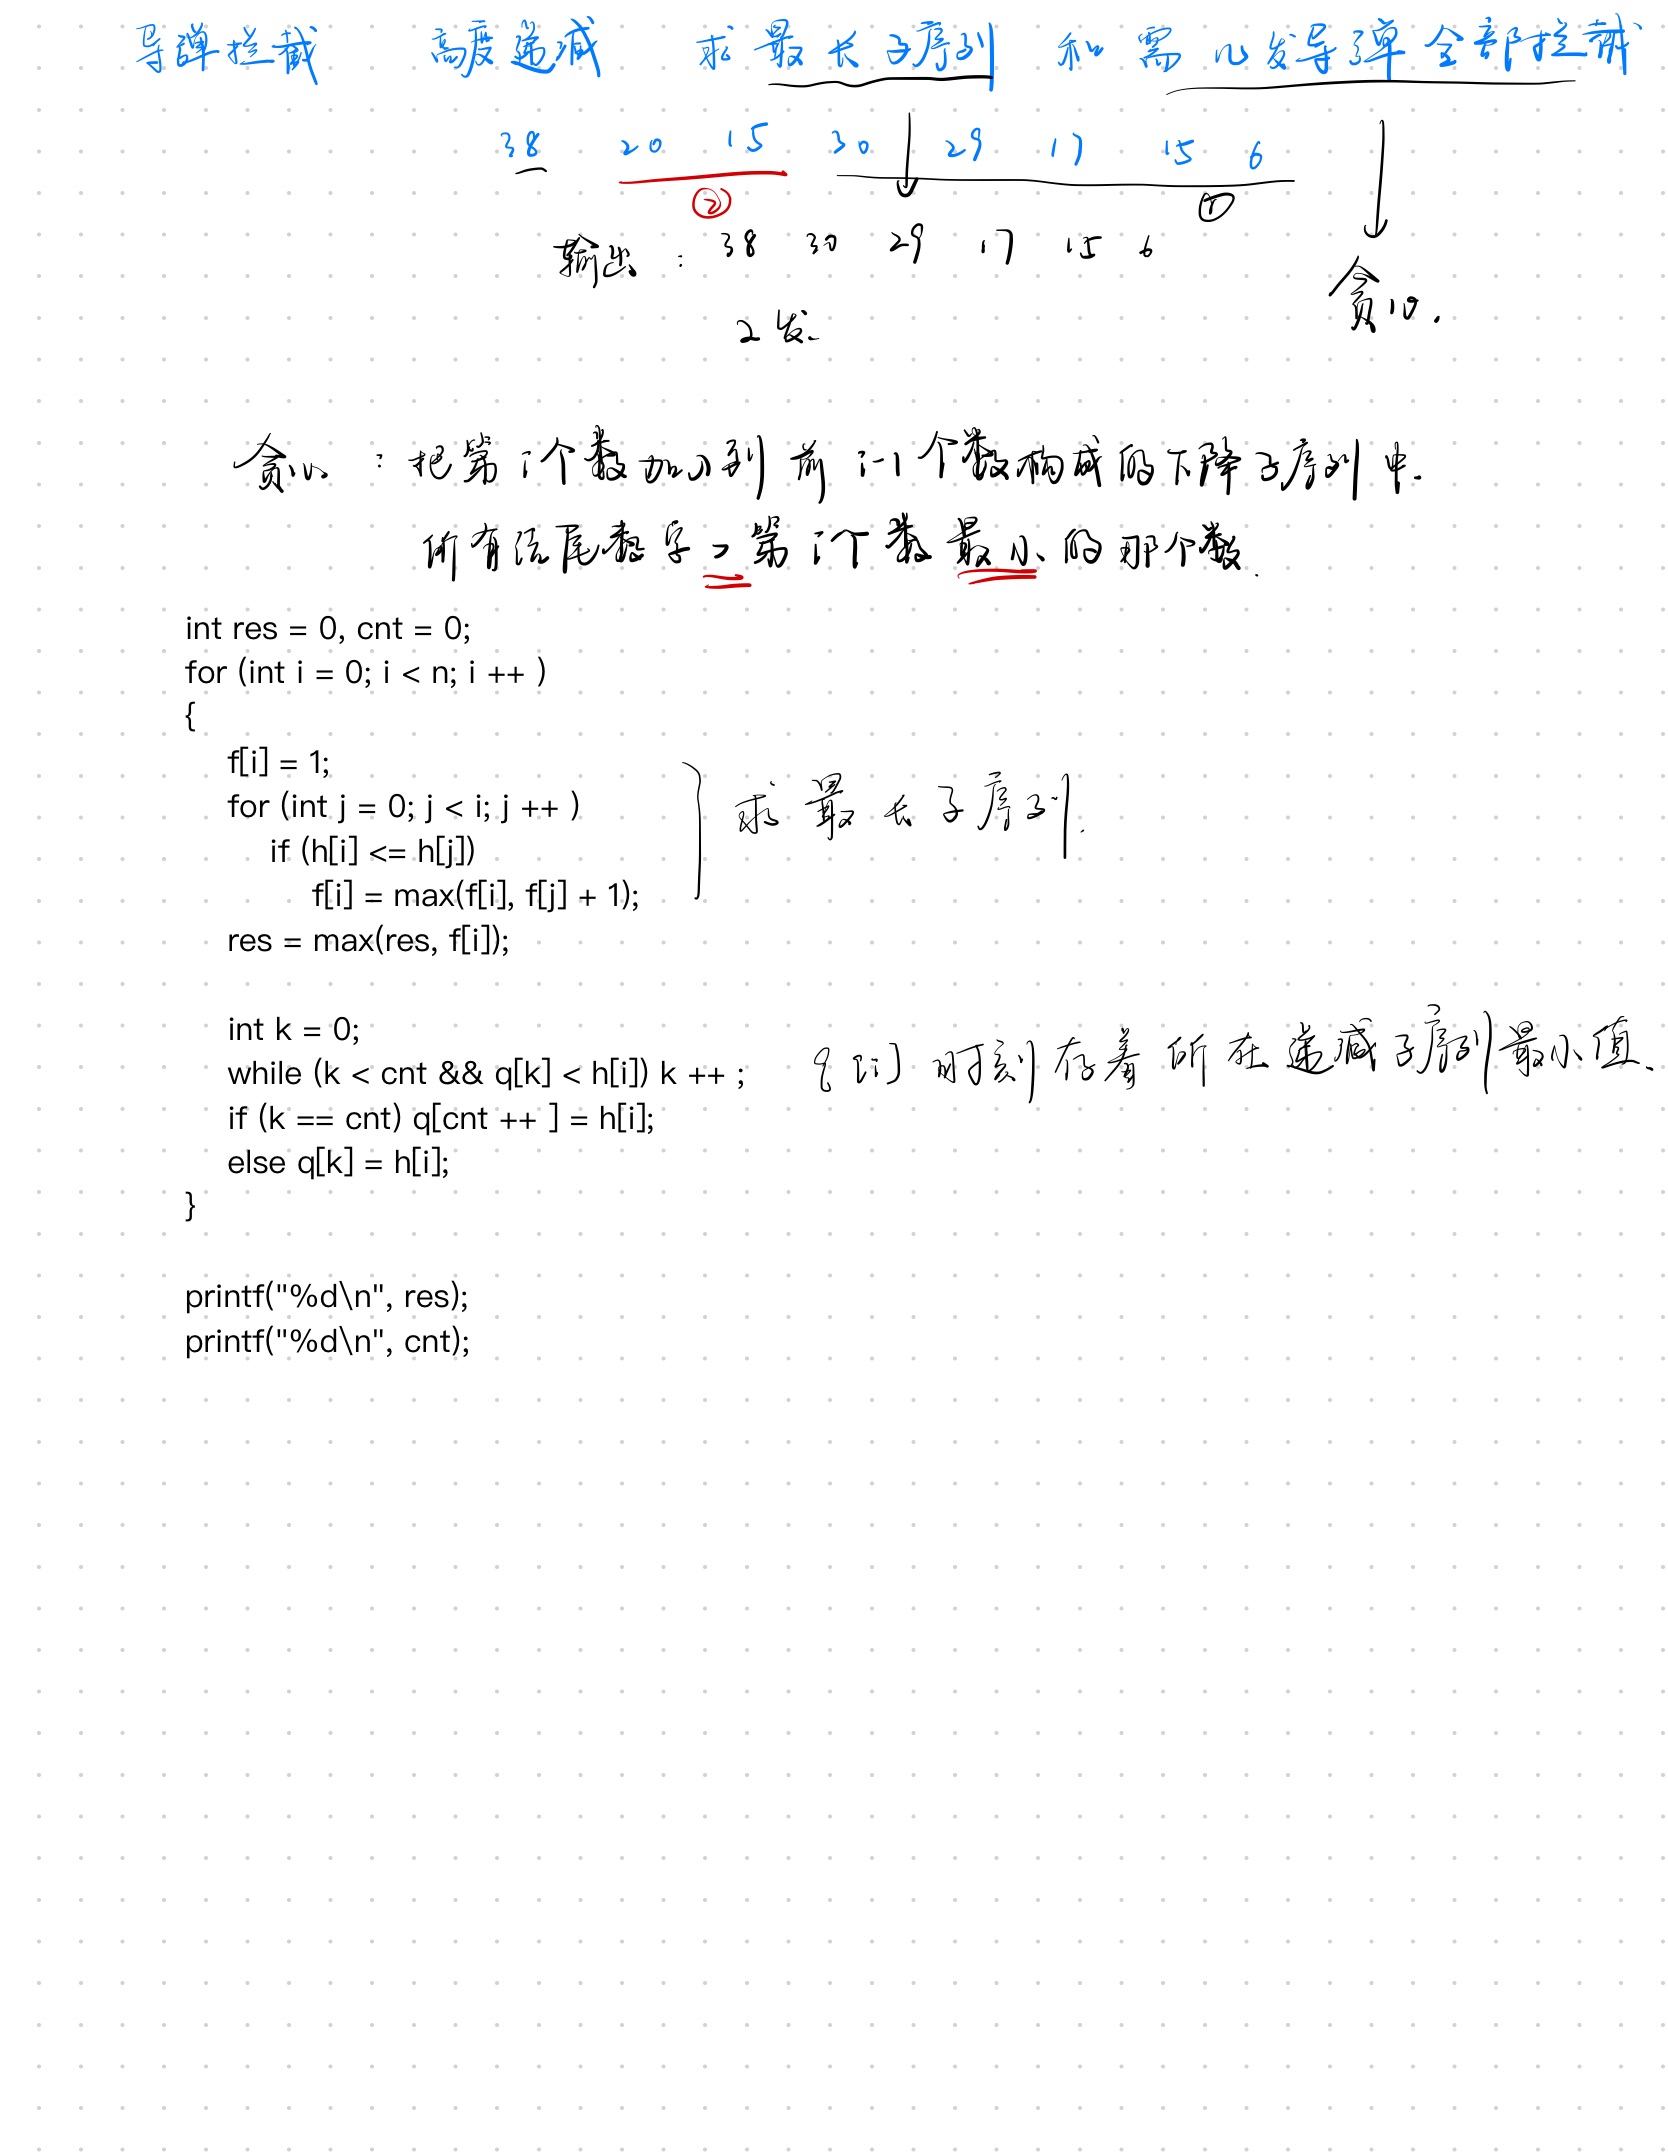 导弹拦截 高度递减 求最长子序列 和需几发导弹全部拦截
38 20 15 30 29 17 15 6
② ①
输出: 38 30 29 17 15 6
贪心.
2发.
贪心:把第i个数加入到前i-1个数构成的下降子序列中.
所有结尾数字>第i个数最小的那个数.
int res = 0, cnt = 0;
for (int i = 0; i < n; i ++ )
{
f[i] = 1;
for (int j = 0; j < i; j ++ )
if (h[i] <= h[j])
求最长子序列.
f[i] = max(f[i], f[j] + 1);
res = max(res, f[i]);
int k = 0;
while (k < cnt && q[k] < h[i]) k ++ ; q[i]时刻存着所在递减子序列最小值.
if (k == cnt) q[cnt ++ ] = h[i];
else q[k] = h[i];
}
printf("%d\n", res);
printf("%d\n", cnt);